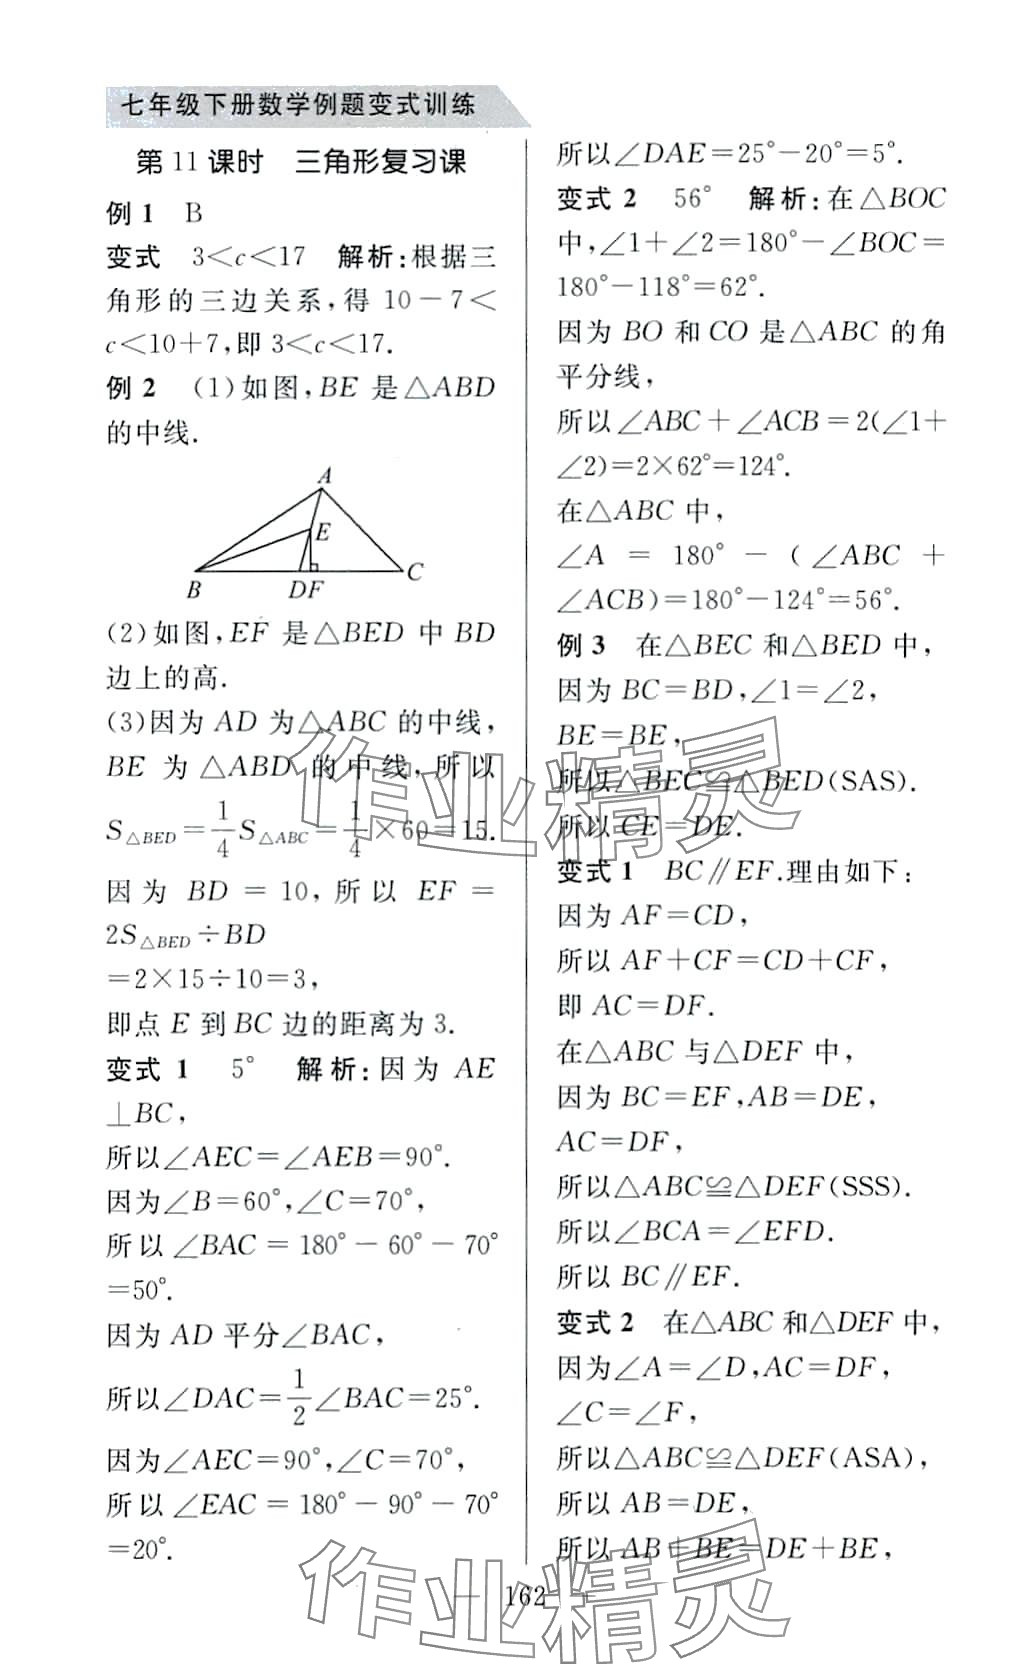 七年级下册数学例题变式训练
第 11 课时　三角形复习课
例 1　B
变式　3<c<17　解析:根据三
角形的三边关系,得 10-7<
c<10+7,即 3<c<17.
例 2　(1)如图,BE 是△ABD
的中线.
A
E
B
D
F
C
(2)如图,EF 是△BED 中 BD
边上的高.
(3)因为 AD 为△ABC 的中线,
BE 为△ABD 的中线,所以
S△BED=1/4S△ABC=1/4×60=15.
因为 BD=10,所以 EF=
2S△BED÷BD
=2×15÷10=3,
即点 E 到 BC 边的距离为 3.
变式 1　5°　解析:因为 AE
⊥BC,
所以∠AEC=∠AEB=90°.
因为∠B=60°,∠C=70°,
所以∠BAC=180°-60°-70°
=50°.
因为 AD 平分∠BAC,
所以∠DAC=1/2∠BAC=25°.
因为∠AEC=90°,∠C=70°,
所以∠EAC=180°-90°-70°
=20°.
所以∠DAE=25°-20°=5°.
变式 2　56°　解析:在△BOC
中,∠1+∠2=180°-∠BOC=
180°-118°=62°.
因为 BO 和 CO 是△ABC 的角
平分线,
所以∠ABC+∠ACB=2(∠1+
∠2)=2×62°=124°.
在△ABC 中,
∠A=180°-(∠ABC+
∠ACB)=180°-124°=56°.
例 3　在△BEC 和△BED 中,
因为 BC=BD,∠1=∠2,
BE=BE,
所以△BEC≌△BED(SAS).
所以 CE=DE.
变式 1　BC∥EF.理由如下:
因为 AF=CD,
所以 AF+CF=CD+CF,
即 AC=DF.
在△ABC 与△DEF 中,
因为 BC=EF,AB=DE,
AC=DF,
所以△ABC≌△DEF(SSS).
所以∠BCA=∠EFD.
所以 BC∥EF.
变式 2　在△ABC 和△DEF 中,
因为∠A=∠D,AC=DF,
∠C=∠F,
所以△ABC≌△DEF(ASA),
所以 AB=DE,
所以 AB+BE=DE+BE,
— 162 —
作业精灵
作业精灵